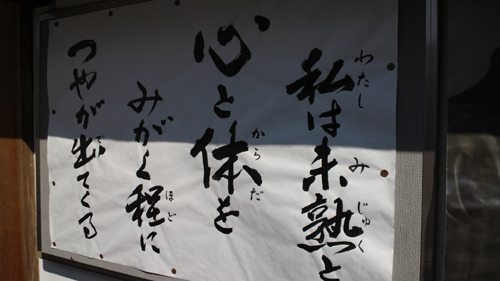 私は未熟と
心と体を
みがく程に
つやが出てくる
わたし
み
じゅく
からだ
ほど
で